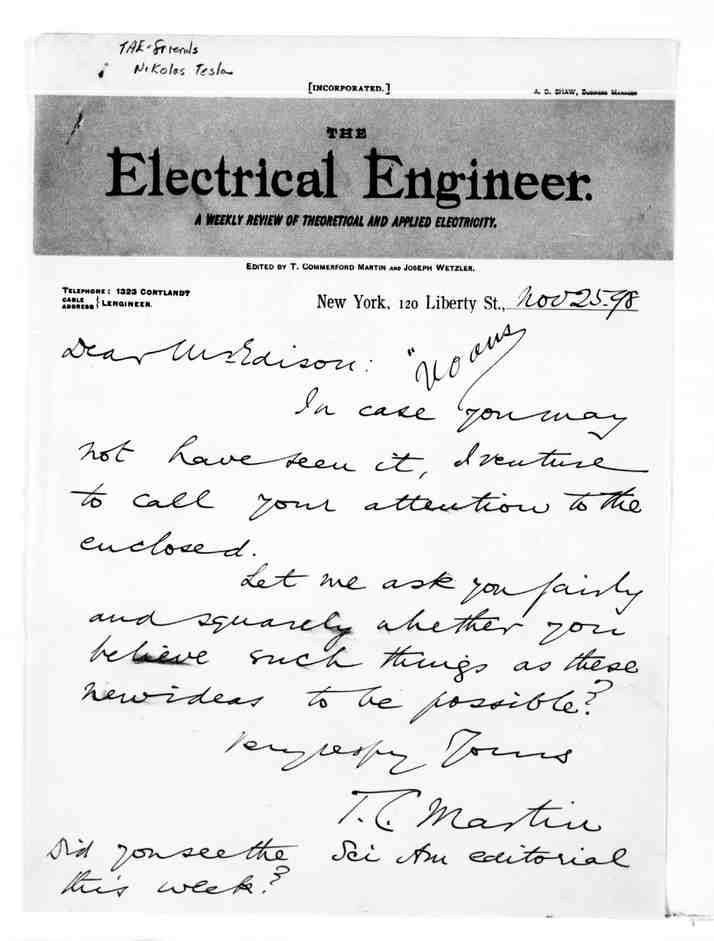 TAE-Friends
Nikolas Tesla
[INCORPORATED.]
A. C. SHAW, BUSINESS MANAGER
THE
Electrical Engineer.
A WEEKLY REVIEW OF THEORETICAL AND APPLIED ELECTRICITY.
EDITED BY T. COMMERFORD MARTIN AND JOSEPH WETZLER.
TELEPHONE: 1323 CORTLANDT
CABLE ADDRESS } LENGINEER.
New York, 120 Liberty St., Nov 25-98
Dear Mr Edison:
"No ans
In case you may
not have seen it, I venture
to call your attention to the
enclosed.
Let me ask you fairly
and squarely whether you
believe such things as these
new ideas to be possible?
Very respy Yours
T.C. Martin
Did you see the Sci Am editorial
this week?